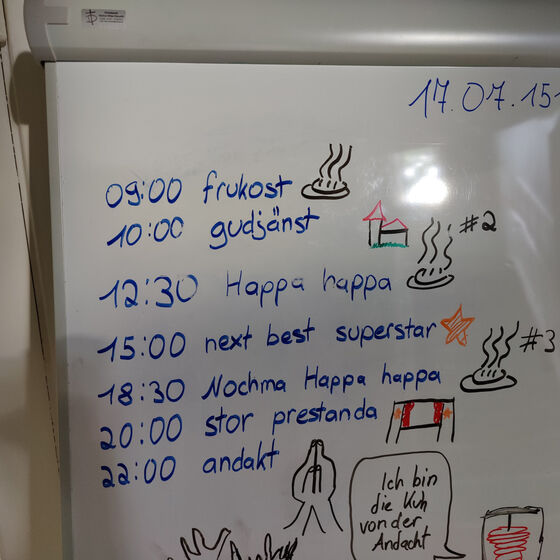 17.07.151
09:00 frukost
10:00 gudjänst
#2
12:30 Happa happa
15:00 next best superstar
#3
18:30 Nochma Happa happa
20:00 stor prestanda
22:00 andakt
Ich bin
die Kuh
von der
Andacht